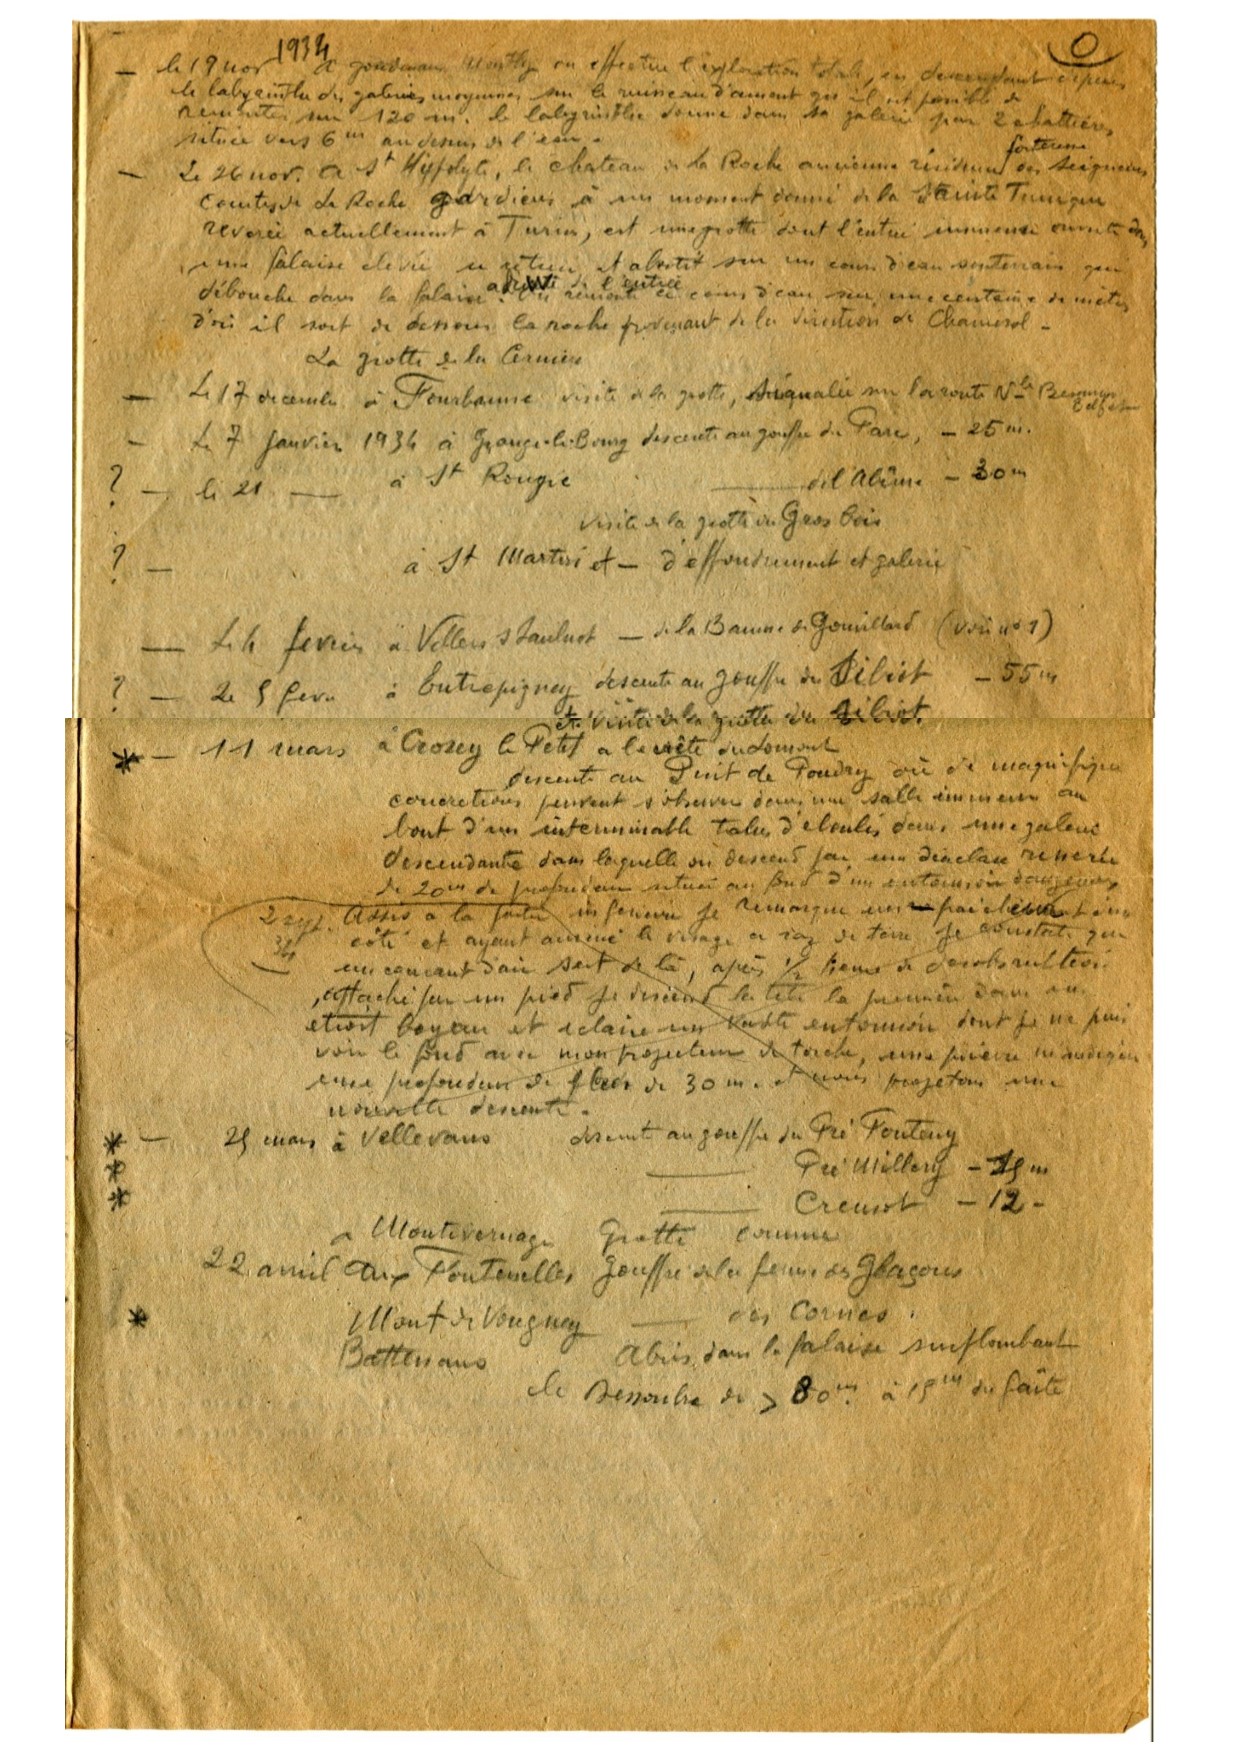 1934
0
— le 19 nov à gondenans Montby on effectue l'exploration totale, en descendant depuis
le labyrinthe des galeries moyennes sur le ruisseau d'amont qu'il est possible de
remonter sur 120 m. le labyrinthe donne dans sa galerie par 2 chattières
située vers 6m au dessus de l'eau.
forteresse
— Le 26 nov. a St Hippolyte, le chateau de la Roche ancienne résidence des seigneurs
Comtes de La Roche gardiens à un moment donné de la Sainte Tunique
reverée actuellement à Turin, est une grotte dont l'entrée immense ouverte dans
une falaise élevée se rétrécit et aboutit sur un cours d'eau souterrain qui
débouche dans la falaise de l'entrée. On remonte ce cours d'eau sur une centaine de mètres
d'où il sort de dessous la roche provenant de la direction de Chamesol -
La grotte de la
— Le 17 decembre à Fourbanne visite de la grotte, signalée sur la route Nle Besançon
Belfort
— Le 7 Janvier 1934 à Grange-le-Bourg descente au gouffre du Parc, - 25 m.
? — le 21 — à St Rougie — de l'Abîme - 30m
visite de la grotte du Gros bois
? — à St Martin et — d'effondrement et galerie
— Le 4 fevrier à Vellers — de la Baume de Gouvillard (voir n° 1)
? — Le 5 fevr à Outrepigney descente au gouffre du Bibiot - 55 m
et visite de la grotte du Bibiot.
* — 11 mars à Crosey le Petit a la crête du Lomont
descente au Puit de Poudry où de magnifiques
concretions peuvent s'observer dans une salle immense au
bout d'un interminable talus d'éboulis dans une galerie
descendante dans laquelle on descend par une diaclase resserrée
de 20m de profondeur située au fond d'un entonnoir dangereux
2 sept. 34 Assis a la partie inférieure je remarque une fraîcheur
côté et ayant amené le visage a raz de terre je constate que
un courant d'air sort de là, après 1/2 heure de desobstruction
attaché par un pied je descend la tête la première dans un
etroit boyau et eclaire un vaste entonnoir dont je ne puis
voir le fond avec mon projecteur de torche, une pierre m'indique
une profondeur de plus de 30 m. et nous projetons une
nouvelle descente.
* — 25 mars à Vellevans descente au gouffre du Pré Fonteny
* — Pré Millery - 15 m
* — Creusot - 12 -
à Montivernage Grotte
22 avril aux Fontenelles gouffre de la ferme des Glaçons
* Mont de Vougney — des Cornes.
Battenans Abris dans la falaise surplombant
le Dessoubre de > 80m. à 15m du faîte